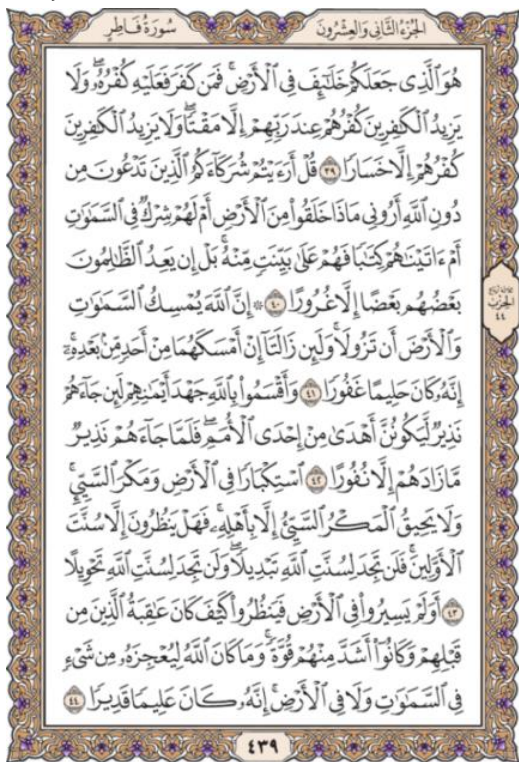 الجُزْءُ الثَّانِي وَالعِشْرُونَ
سُورَةُ فَاطِرٍ
هُوَ ٱلَّذِى جَعَلَكُمْ خَلَٰٓئِفَ فِى ٱلْأَرْضِ ۚ فَمَن كَفَرَ فَعَلَيْهِ كُفْرُهُۥ ۖ وَلَا
يَزِيدُ ٱلْكَٰفِرِينَ كُفْرُهُمْ عِندَ رَبِّهِمْ إِلَّا مَقْتًا ۖ وَلَا يَزِيدُ ٱلْكَٰفِرِينَ
كُفْرُهُمْ إِلَّا خَسَارًا ٣٩ قُلْ أَرَءَيْتُمْ شُرَكَآءَكُمُ ٱلَّذِينَ تَدْعُونَ مِن
دُونِ ٱللَّهِ أَرُونِى مَاذَا خَلَقُوا۟ مِنَ ٱلْأَرْضِ أَمْ لَهُمْ شِرْكٌ فِى ٱلسَّمَٰوَٰتِ
أَمْ ءَاتَيْنَٰهُمْ كِتَٰبًا فَهُمْ عَلَىٰ بَيِّنَتٍ مِّنْهُ ۚ بَلْ إِن يَعِدُ ٱلظَّٰلِمُونَ
بَعْضُهُم بَعْضًا إِلَّا غُرُورًا ٤٠ ۞ إِنَّ ٱللَّهَ يُمْسِكُ ٱلسَّمَٰوَٰتِ
وَٱلْأَرْضَ أَن تَزُولَا ۚ وَلَئِن زَالَتَآ إِنْ أَمْسَكَهُمَا مِنْ أَحَدٍ مِّنۢ بَعْدِهِۦٓ ۚ
إِنَّهُۥ كَانَ حَلِيمًا غَفُورًا ٤١ وَأَقْسَمُوا۟ بِٱللَّهِ جَهْدَ أَيْمَٰنِهِمْ لَئِن جَآءَهُمْ
نَذِيرٌ لَّيَكُونُنَّ أَهْدَىٰ مِنْ إِحْدَى ٱلْأُمَمِ ۖ فَلَمَّا جَآءَهُمْ نَذِيرٌ
مَّا زَادَهُمْ إِلَّا نُفُورًا ٤٢ ٱسْتِكْبَارًا فِى ٱلْأَرْضِ وَمَكْرَ ٱلسَّيِّئِ ۚ
وَلَا يَحِيقُ ٱلْمَكْرُ ٱلسَّيِّئُ إِلَّا بِأَهْلِهِۦ ۚ فَهَلْ يَنظُرُونَ إِلَّا سُنَّتَ
ٱلْأَوَّلِينَ ۚ فَلَن تَجِدَ لِسُنَّتِ ٱللَّهِ تَبْدِيلًا ۖ وَلَن تَجِدَ لِسُنَّتِ ٱللَّهِ تَحْوِيلًا
٤٣ أَوَلَمْ يَسِيرُوا۟ فِى ٱلْأَرْضِ فَيَنظُرُوا۟ كَيْفَ كَانَ عَٰقِبَةُ ٱلَّذِينَ مِن
قَبْلِهِمْ وَكَانُوٓا۟ أَشَدَّ مِنْهُمْ قُوَّةً ۚ وَمَا كَانَ ٱللَّهُ لِيُعْجِزَهُۥ مِن شَىْءٍ
فِى ٱلسَّمَٰوَٰتِ وَلَا فِى ٱلْأَرْضِ ۚ إِنَّهُۥ كَانَ عَلِيمًا قَدِيرًا ٤٤
الحِزْب
٤٤
٤٣٩